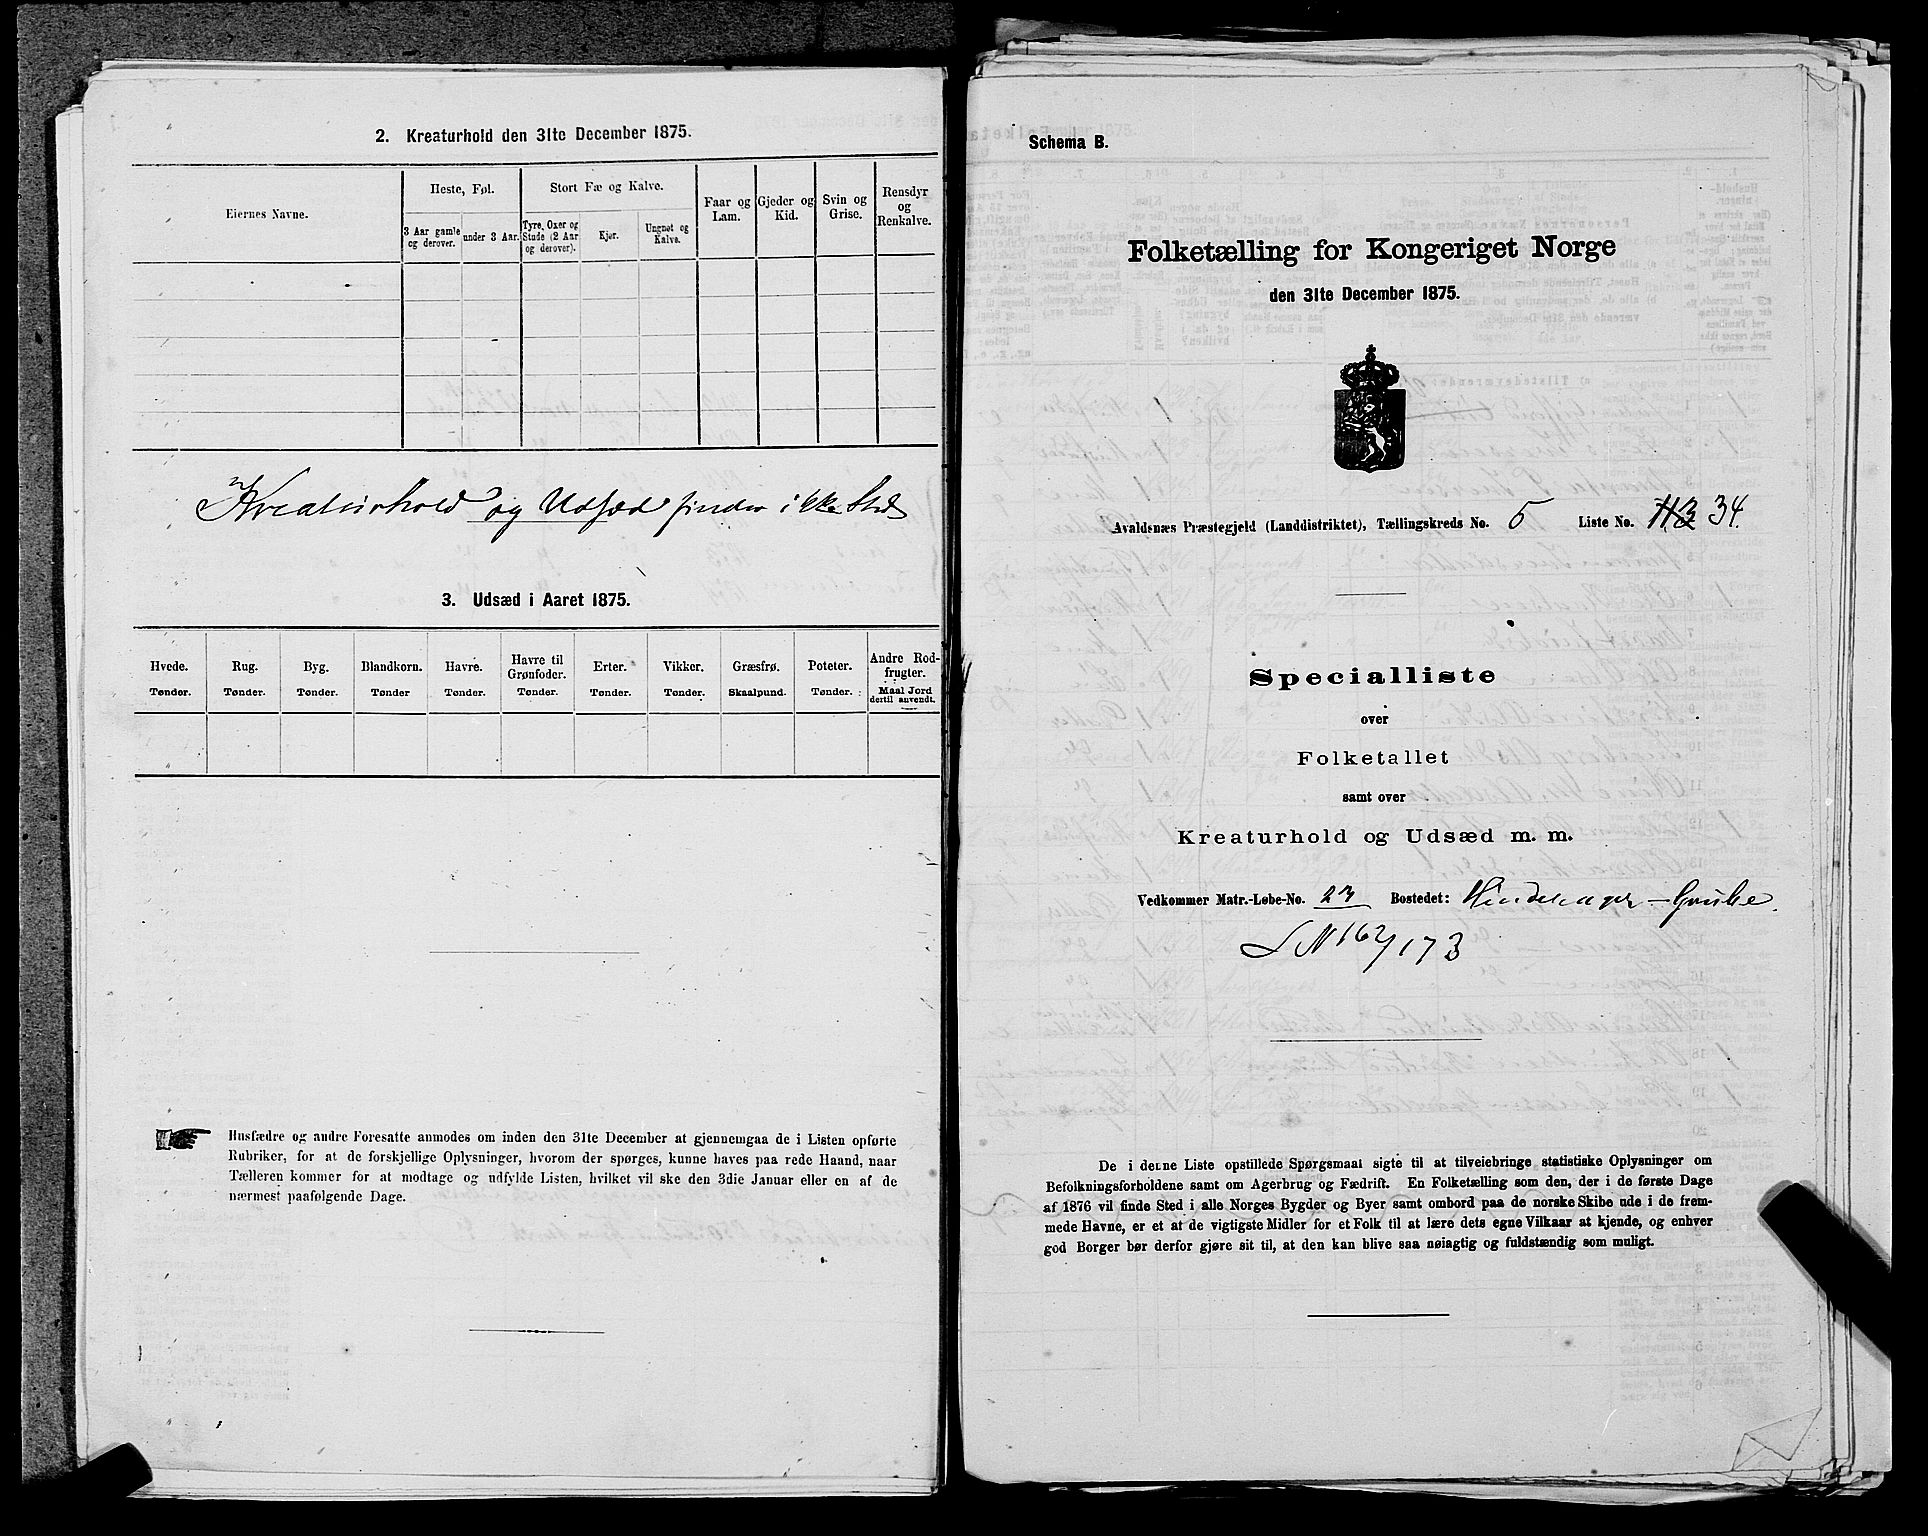 2. Kreaturhold den 31te December 1875.
Eiernes Navne.
Heste, Føl.
3 Aar gamle og derover.
under 3 Aar.
Stort Fæ og Kalve.
Tyre, Oxer og Stude (2 Aar og derover).
Kjør.
Ungnøt og Kalve.
Faar og Lam.
Gjeder og Kid.
Svin og Grise.
Rensdyr og Renkalve.
Kreaturhold og Udsæd finder ikke Sted
3. Udsæd i Aaret 1875.
Hvede. Rug. Byg. Blandkorn. Havre. Havre til Grønfoder. Erter. Vikker. Græsfrø. Poteter. Andre Rodfrugter.
Tønder. Tønder. Tønder. Tønder Tønder. Tønder. Tønder. Tønder. Skaalpund. Tønder. Maal Jord dertil anvendt.
Husfædre og andre Foresatte anmodes om inden den 31te December at gjennemgaa de i Listen opførte
Rubriker, for at de forskjellige Oplysninger, hvorom der spørges, kunne haves paa rede Haand, naar
Tælleren kommer for at modtage og udfylde Listen, hvilket vil ske den 3die Januar eller en af de
nærmest paafølgende Dage.
Schema B.
Folketælling for Kongeriget Norge
den 31te December 1875.
Avaldsnæs Præstegjeld (Landdistriktet), Tællingskreds No. 5 Liste No. 34.
Specialliste
over
Folketallet
samt over
Kreaturhold og Udsæd m. m.
Vedkommer Matr.-Løbe-No. 23 Bostedet: Hindesager-Grube.
LN 162/173
De i denne Liste opstillede Spørgsmaal sigte til at tilveiebringe statistiske Oplysninger om
Befolkningsforholdene samt om Agerbrug og Fædrift. En Folketælling som den, der i de første Dage
af 1876 vil finde Sted i alle Norges Bygder og Byer samt ombord paa de norske Skibe ude i de frem-
mede Havne, er et at de vigtigste Midler for et Folk til at lære dets egne Vilkaar at kjende, og enhver
god Borger bør derfor gjøre sit til, at den kan blive saa nøiagtig og fuldstændig som muligt.